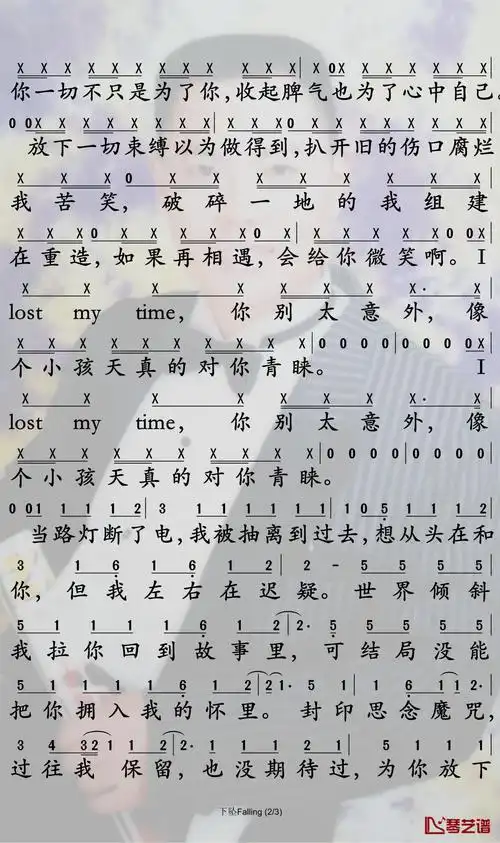 X X X X X X X X X X X X| X 0X X X X X X X
你一切不只是为了你,收起脾气也为了心中自己。
0 0X X X X X X X X X X X 0| X X X X X X X X
放下一切束缚以为做得到,扒开旧的伤口腐烂
X X X 0 X X X X X X X
我苦笑,破碎一地的我组建
X X X 0X X X X X 0 X X X X X X 0 |0X
在重造,如果再相遇,会给你微笑啊。I
X X X X X X X X· X
lost my time, 你别太意外,像
X X X X X X X X X X X |0 0 0 0|0 0 0 0|0 0 0 0X
个小孩天真的对你青睐。 I
X X X X X X X X· X
lost my time, 你别太意外,像
X X X X X X X X X X X |0 0 0 0|0 0 0 0
个小孩天真的对你青睐。
0 01 1 1 1 2|3 1 1 1 1 1 1 2|1 05 1 1 1 2
当路灯断了电,我被抽离到过去,想从头在和
3 1 6 1 6 1 2 |2 - 5 5 5 5
你,但我左右在迟疑。世界倾斜
5 1 1 1 1 6 1 2|2· 5 5 5 5 5
我拉你回到故事里,可结局没能
5 1 1 1 1 6 1 2 |2 21· 5 1 |1 6 1 12·
把你拥入我的怀里。封印思念魔咒,
3 4 321 1 1 2 |2· 1 1 1 2 1 |5 1 1 1
过往我保留,也没期待过,为你放下
下坠Falling (2/3)
琴艺谱